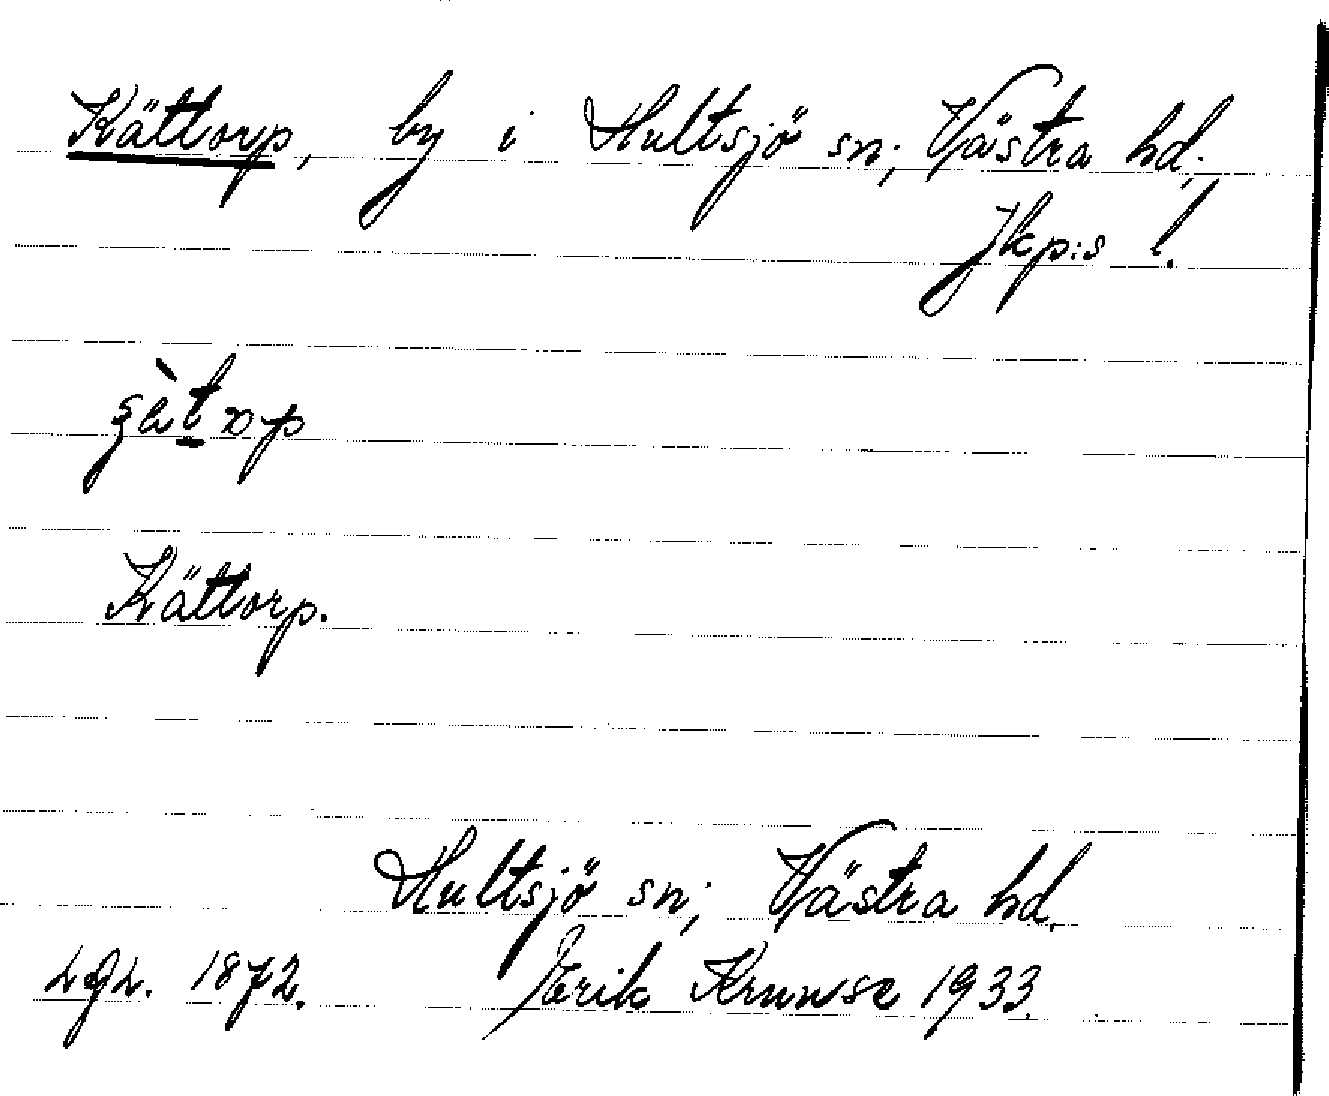 Kättorp, by i Hultsjö sn; Västra hd;
Jkp:s l.
Kättorp.
Hultsjö sn; Västra hd.
1872. Erik Krunse 1933.